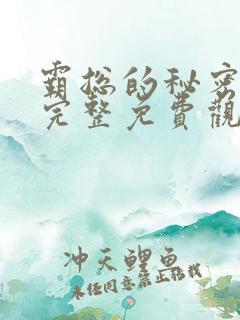 霸总的秘密
完整免費觀
冲天鲤鱼
未经同意禁止转载